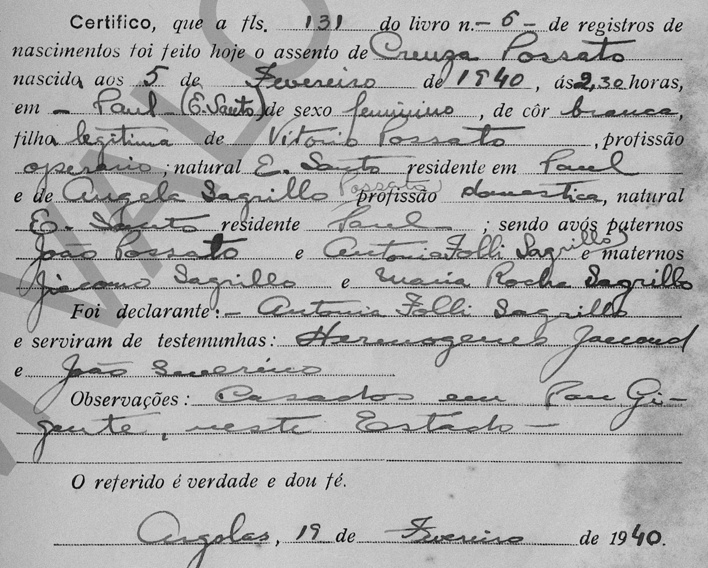 Certifico, que a fls. 131 do livro n. - 6 - de registros de
nascimentos foi feito hoje o assento de Creuza Possato
nascida aos 5 de Fevereiro de 1940, ás 2,30 horas,
em - Paul - (E. Santo) de sexo feminino, de côr branca,
filha legitima de Vitorio Possato, profissão
operario; natural E. Santo residente em Paul
e de Angela Sagrillo Possato profissão domestica, natural
E. Santo residente Paul; sendo avós paternos
João Possato e Antonia Folli Sagrillo e maternos
Jiácomo Sagrillo e Maria Rocha Sagrillo
Foi declarante: - Antonia Folli Sagrillo
e serviram de testemunhas: Hermogenes Jaccoud
e João Severino
Observações: Casados em Pau Gi-
gante, neste Estado -
O referido é verdade e dou fé.
Argolas, 19 de Fevereiro de 1940.